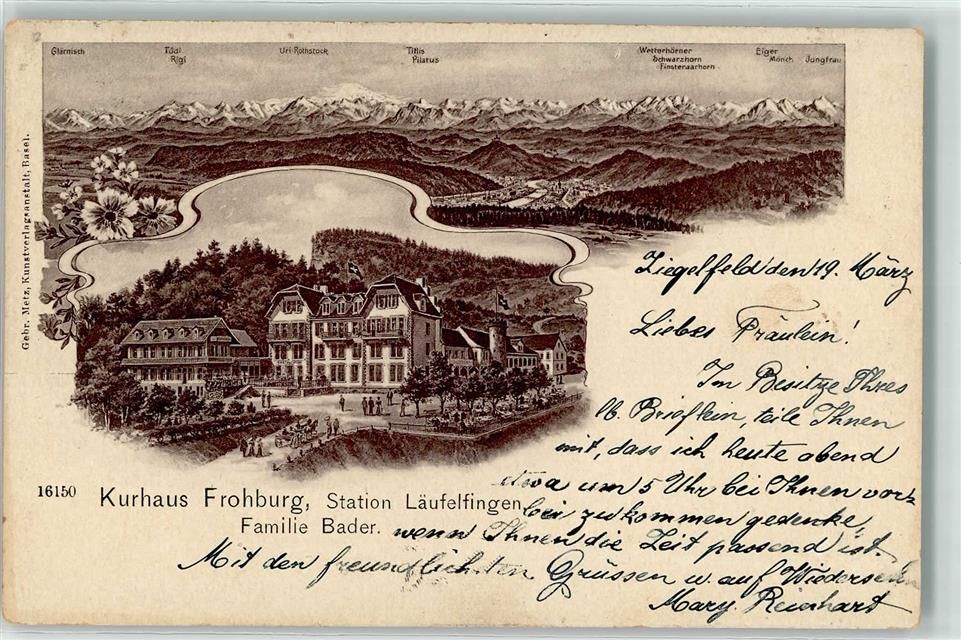 Glärnisch
Tödi
Rigi
Uri-Rothstock
Titlis
Pilatus
Wetterhörner
Schwarzhorn
Finsteraarhorn
Eiger
Mönch
Jungfrau
Gebr. Metz, Kunstverlagsanstalt, Basel.
Ziegelfeld den 19. März
Liebes Fräulein!
Im Besitze Ihres
lb. Brieflein, teile Ihnen
mit, dass ich heute abend
etwa um 5 Uhr bei Ihnen vor-
bei zu kommen gedenke,
wenn Ihnen die Zeit passend ist.
Mit den freundlichsten Grüssen u. auf Wiedersehn
Mary Reinhart
16150
Kurhaus Frohburg, Station Läufelfingen
Familie Bader.